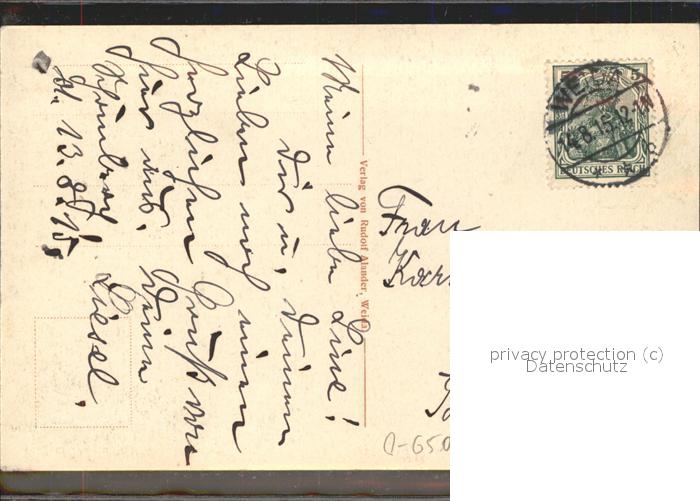 Meine liebe Line!
Dir u. Deinen
Lieben noch einen
herzlichen Gruß von
hier aus. Deine
Liesel.
d. 13.8.15.
Verlag von Rudolf Alander, Weida
WEIDA
14.8.15.
DEUTSCHES REICH
5
Frau
privacy protection (c)
Datenschutz